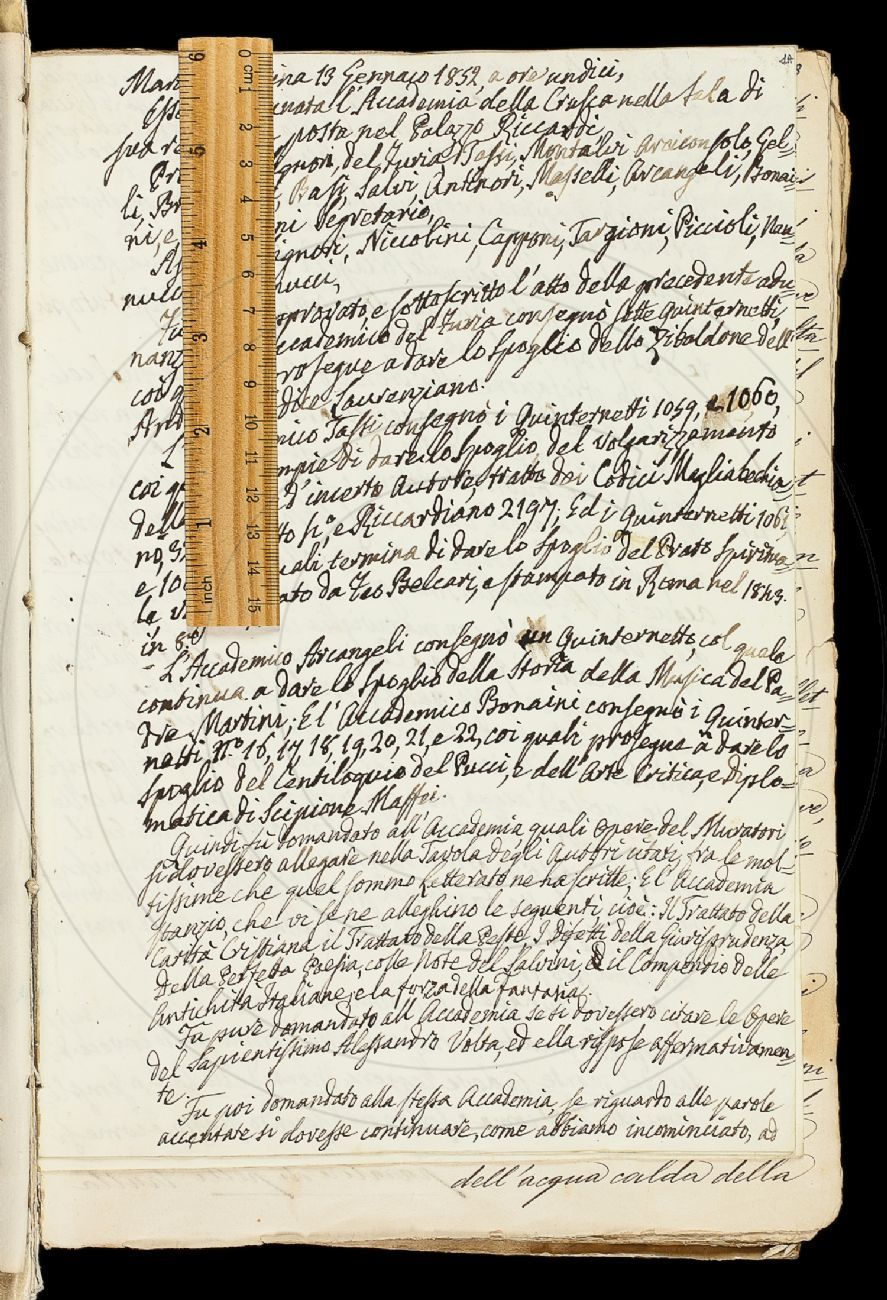 Mar ina 13 Gennaio 1852, a ore undici,
Esse unata l'Accademia della Crusca nella sala di
sua re posta nel Palazzo Riccardi
Pre ignori, del Furia Arciconsolo, Gel=
li, Br , Basi, Salvi, Antinori, Masselli, Arcangeli, Bonai=
ni, e ni Segretario,
As ignori, Niccolini, Capponi, Targioni, Piccioli, Nan=
nucci nucci,
Fu provato, e sottoscritto l'atto della precedente adu
nanz ccademico del Furia consegnò sette Quinternetti,
coi q rosegue a dare lo spoglio dello Zibaldone dell'
And dice Laurenziano.
L' mico Tassi consegnò i Quinternetti 1059, e 1060,
coi qu mpie di dare lo spoglio del Volgarizzamento
dell d'incerto Autore, tratto dai Codici Magliabechia=
no, 3 to pi°, e Riccardiano 2197; Ed i Quinternetti 1061,
e 10 uali termina di dare lo spoglio del Prato Spiritua=
le v ato da Feo Belcari, e stampato in Roma nel 1843.
in 8.°
L'Accademico Arcangeli consegnò un Quinternetto, col quale
continua a dare lo spoglio della Storia della Musica del Pa=
dre Martini; E l'Accademico Bonaini consegnò i Quinter=
netti N.° 16, 17, 18, 19, 20, 21, e 22, coi quali prosegue a dare lo
spoglio del Centiloquio del Pucci, e dell'Arte Critica, e Diplo=
matica di Scipione Maffei.
Quindi fù domandato all'Accademia quali Opere del Muratori
si dovessero allegare nella Tavola degli Autori citati, fra le mol=
tissime che quel sommo Letterato ne ha scritte; E l'Accademia
stanziò, che vi se ne alleghino le seguenti, cioè: Il Trattato della
Carità Cristiana, il Trattato della Peste, I Difetti della Giurisprudenza,
Della Perfetta Poesia, colle Note del Salvini, e il Compendio delle
Antichità Italiane, e la forza della fantasia.
Fu pure domandato all'Accademia se si dovessero citare le Opere
del Sapientissimo Alessandro Volta, ed ella rispose affermativamen=
te.
Fu poi domandato alla stessa Accademia, se riguardo alle parole
accentate si dovesse continuare, come abbiamo incominciato, ad
dell'acqua calda della
6
5
4
3
2
1
inch
0 cm
1
2
3
4
5
6
7
8
9
10
11
12
13
14
15